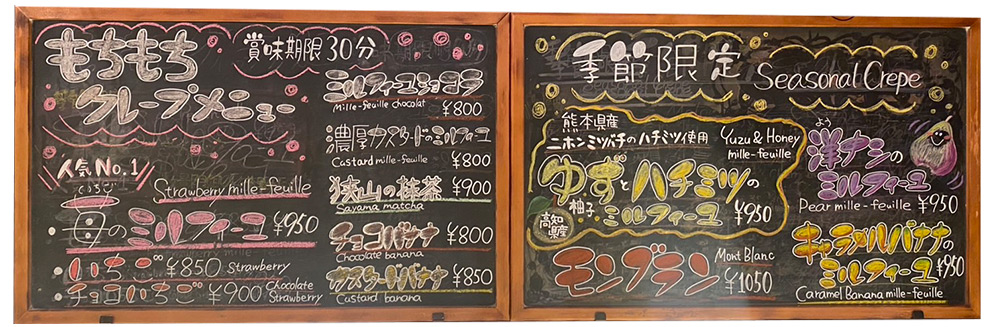 もちもち
クレープメニュー
賞味期限30分
人気No.1
いちご
苺のミルフィーユ ¥950
Strawberry mille-feuille
いちご ¥850 Strawberry
チョコいちご ¥900 Chocolate Strawberry
ミルフィーユショコラ
Mille-feuille chocolat ¥800
濃厚カスタードのミルフィーユ
Custard mille-feuille ¥800
狭山の抹茶 ¥900
Sayama matcha
チョコバナナ ¥800
Chocolate banana
カスタードバナナ ¥850
Custard banana
季節限定 Seasonal Crepe
熊本県産
ニホンミツバチのハチミツ使用
Yuzu & Honey
mille-feuille
ゆずとハチミツの
柚子
ミルフィーユ ¥950
高知
県産
モンブラン
Mont Blanc
¥1050
よう
洋ナシの
ミルフィーユ
Pear mille-feuille ¥950
キャラメルバナナの
ミルフィーユ ¥950
Caramel Banana mille-feuille